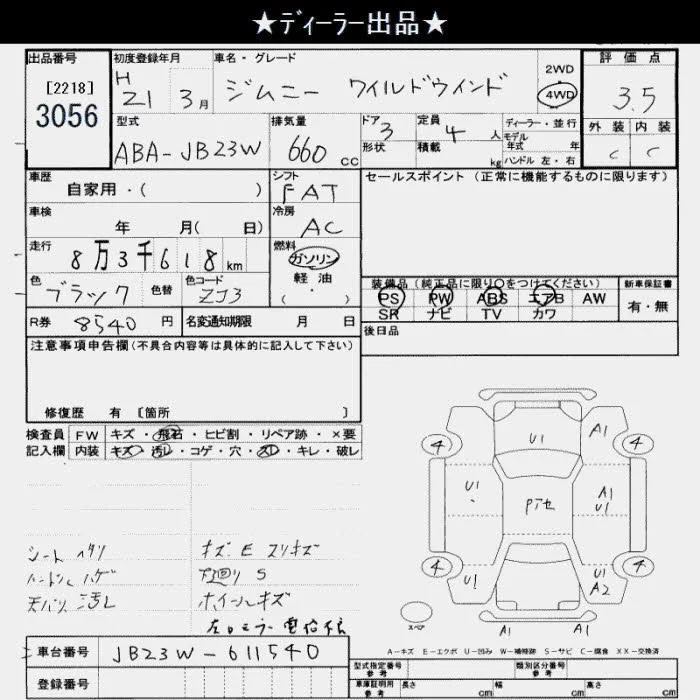 ★ディーラー出品★
出品番号 初度登録年月 車名・グレード 評価点
[2218] H 2WD
3056 21 3月 ジムニー ワイルドウインド 4WD 3.5
型式 排気量 ドア 定員 ディーラー・並行 外装 内装
ABA-JB23W 660cc 3 4人 モデル年式 年 C C
形状 積載 kg ハンドル 左・右
車歴 シフト セールスポイント (正常に機能するものに限ります)
自家用・( ) FAT
車検 冷房
年 月( 日) AC
走行 燃料
8万3千618km ガソリン
色 色コード 軽油
ブラック 色替 ZJ3 ( ・ )
装備品(純正品に限り○をつけてください) 新車保証書
PS PW ABS エアB AW 有・無
SR ナビ TV カワ
R券 8540円 名変通知期限 月 日 後日品
注意事項申告欄(不具合内容等は具体的に記入して下さい)
修復歴 有 [箇所 ]
検査員 FW キズ・飛石・ヒビ割・リペア跡・×要
記入欄 内装 キズ・汚レ・コゲ・穴・スレ・キレ・破レ
4 U1 A1 4
U1 Pアセ A1
U1
4 U1 U1 4
A2
スペア A1 A1
シート ヘタリ キズ E スリキズ
ハゲ 下廻り S
天バリ 汚レ ホイールキズ
左ロミラー
A-キズ E-エクボ U-凹み W-補修跡 S-サビ C-腐食 XX-交換済
車台番号 JB23W-611540 型式指定番号 参考 類別区分番号 参考
登録番号 車庫証明用 参考 長さ cm 幅 cm 高さ cm